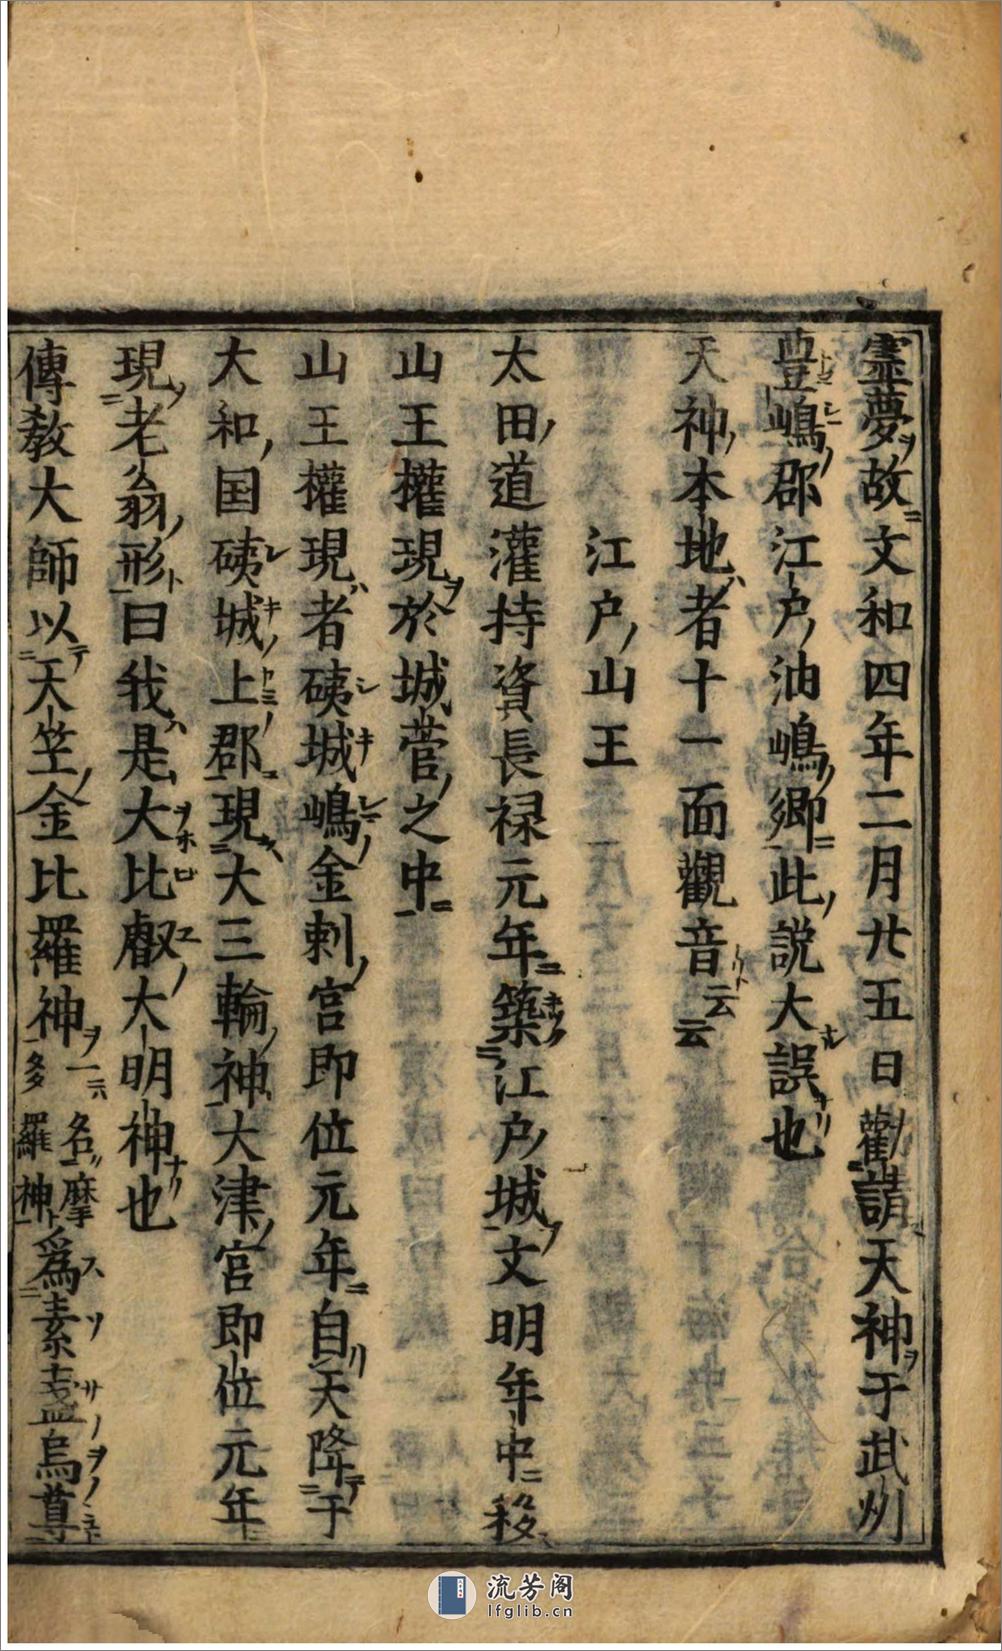 霊夢ヲ故ニ文和四年二月廿五日勸請天神ヲ于武刕
豊嶋郡江戸油嶋ノ郷ニ此ノ説大誤也
天神ノ本地ハ者十一面觀音ト云云
江戸ノ山王
太田ノ道灌持資長禄元年ニ築江戸ノ城ヲ文明年中ニ移
山王權現ヲ於城營ノ之中ニ
山王權現ハ者磺城嶋金刺ノ宮即位元年ニ自リ天降テ于
大和ノ国磺城上ノ郡ニ現ス大三輪ノ神大津ノ宮即位元年
現ニ老翁ノ形ト曰我ハ是大比叡ノ大明神ナリ也
傳教大師以テ天竺ノ金比羅神ヲ一云名摩多羅神ト爲ス素盞烏ノ尊
流芳阁
lfglib.cn